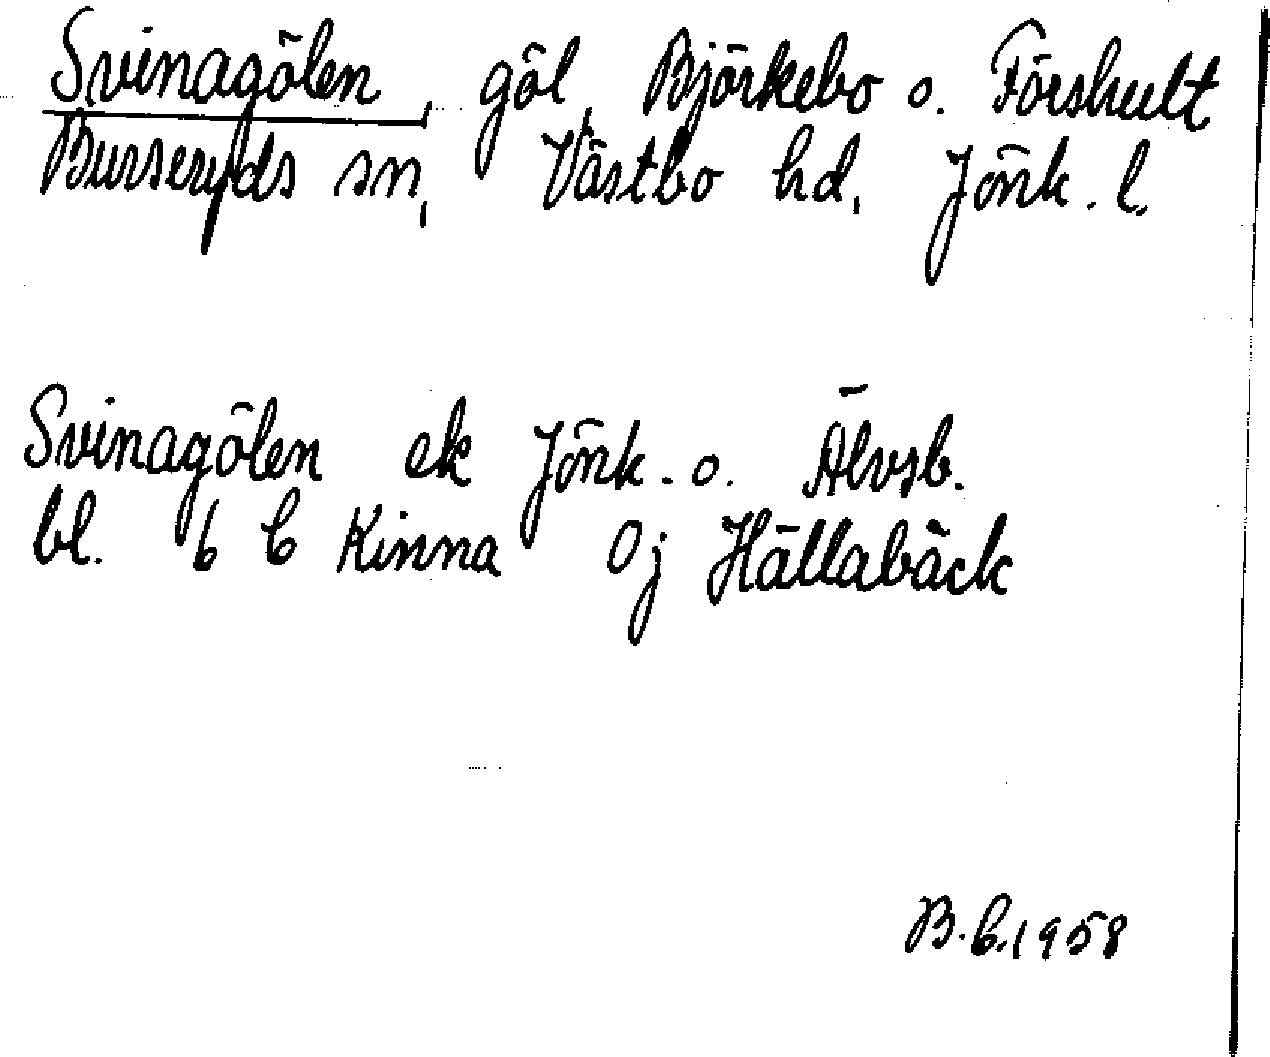 Svinagölen, göl, Björkebo o. Förshult
Burseryds sn, Västbo hd, Jönk. l.
Svinagölen ek Jönk. o. Älvsb.
bl. 6 C Kinna 0j Hällabäck
B.C. 1958